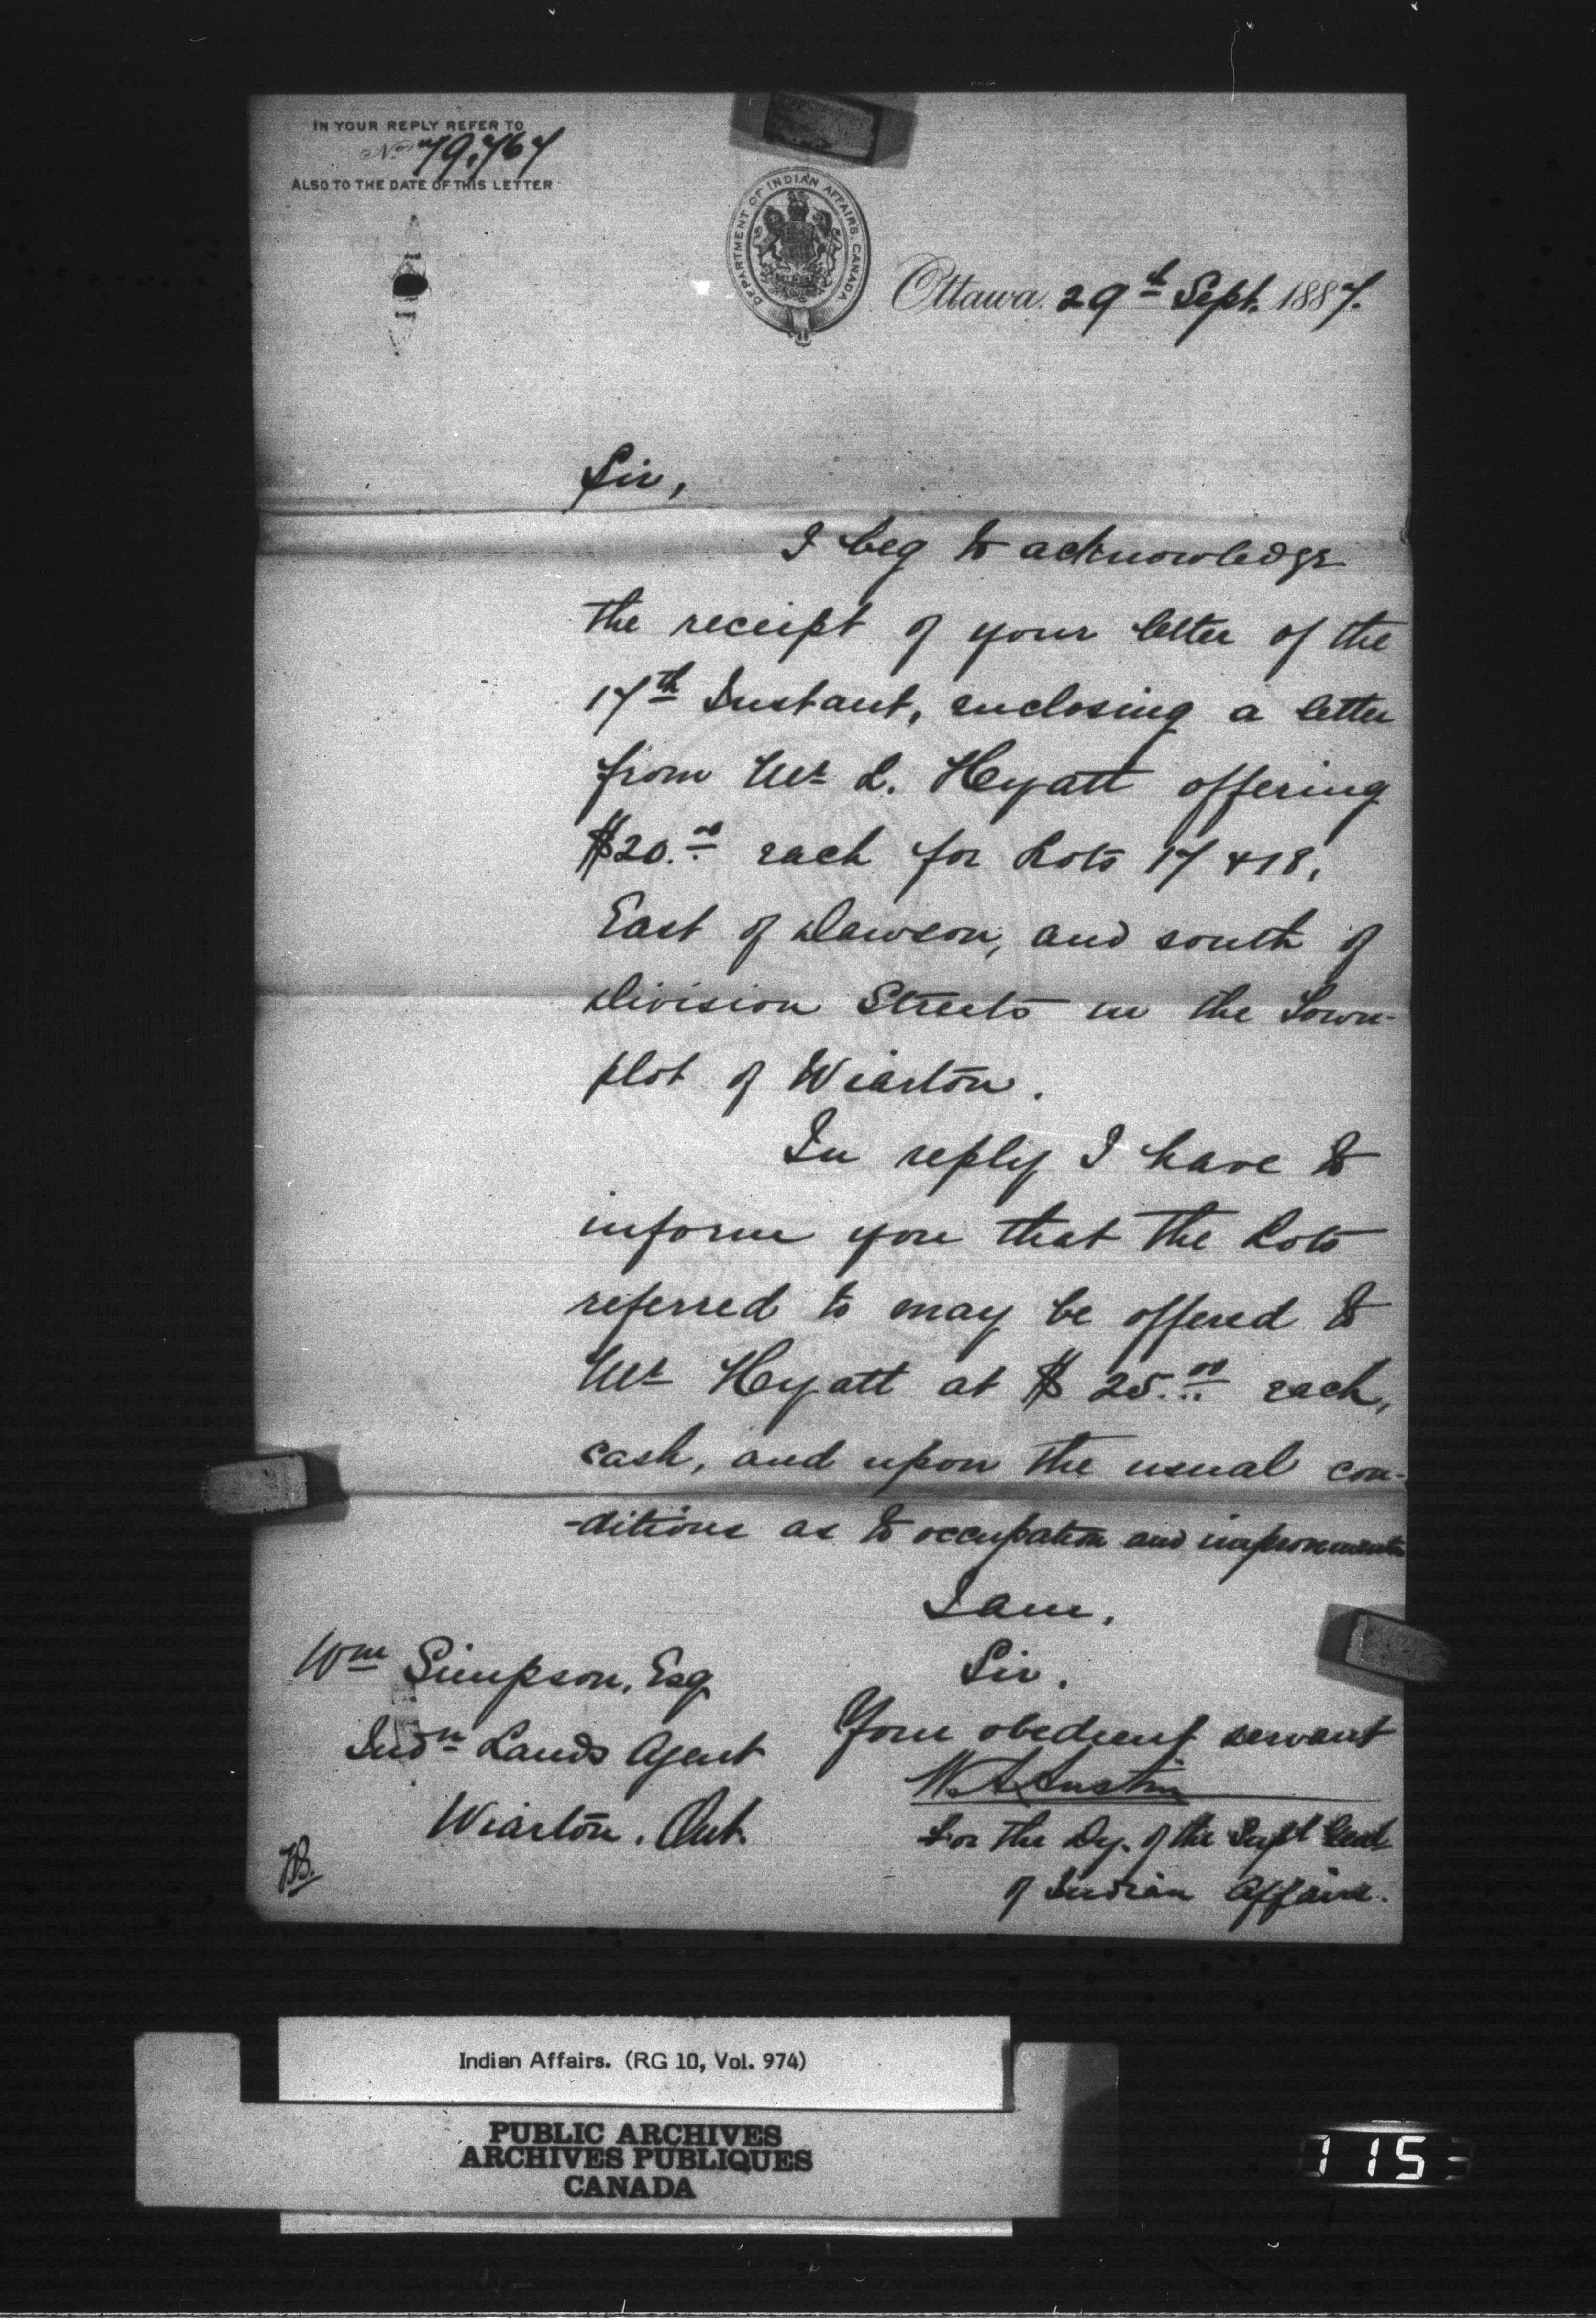 IN YOUR REPLY REFER TO
No 79,767
ALSO TO THE DATE OF THIS LETTER
DEPARTMENT OF INDIAN AFFAIRS, CANADA
Ottawa 29th Sept. 1887.
Sir,
I beg to acknowledge
the receipt of your letter of the
17th Instant, enclosing a letter
from Mr L. Hyatt offering
$20.00 each for Lots 17 & 18,
East of Dawson, and south of
Division Streets in the Town-
plot of Wiarton.
In reply I have to
inform you that the Lots
referred to may be offered to
Mr Hyatt at $25.00 each,
cash, and upon the usual con-
-ditions as to occupation and improvements
I am,
Sir.
Your obedient servant
W. A. Austin
For the Dy. of the Supt Genl
of Indian Affairs.
Wm Simpson, Esq
Indn Lands Agent
Wiarton, Ont.
Indian Affairs. (RG 10, Vol. 974)
PUBLIC ARCHIVES
ARCHIVES PUBLIQUES
CANADA